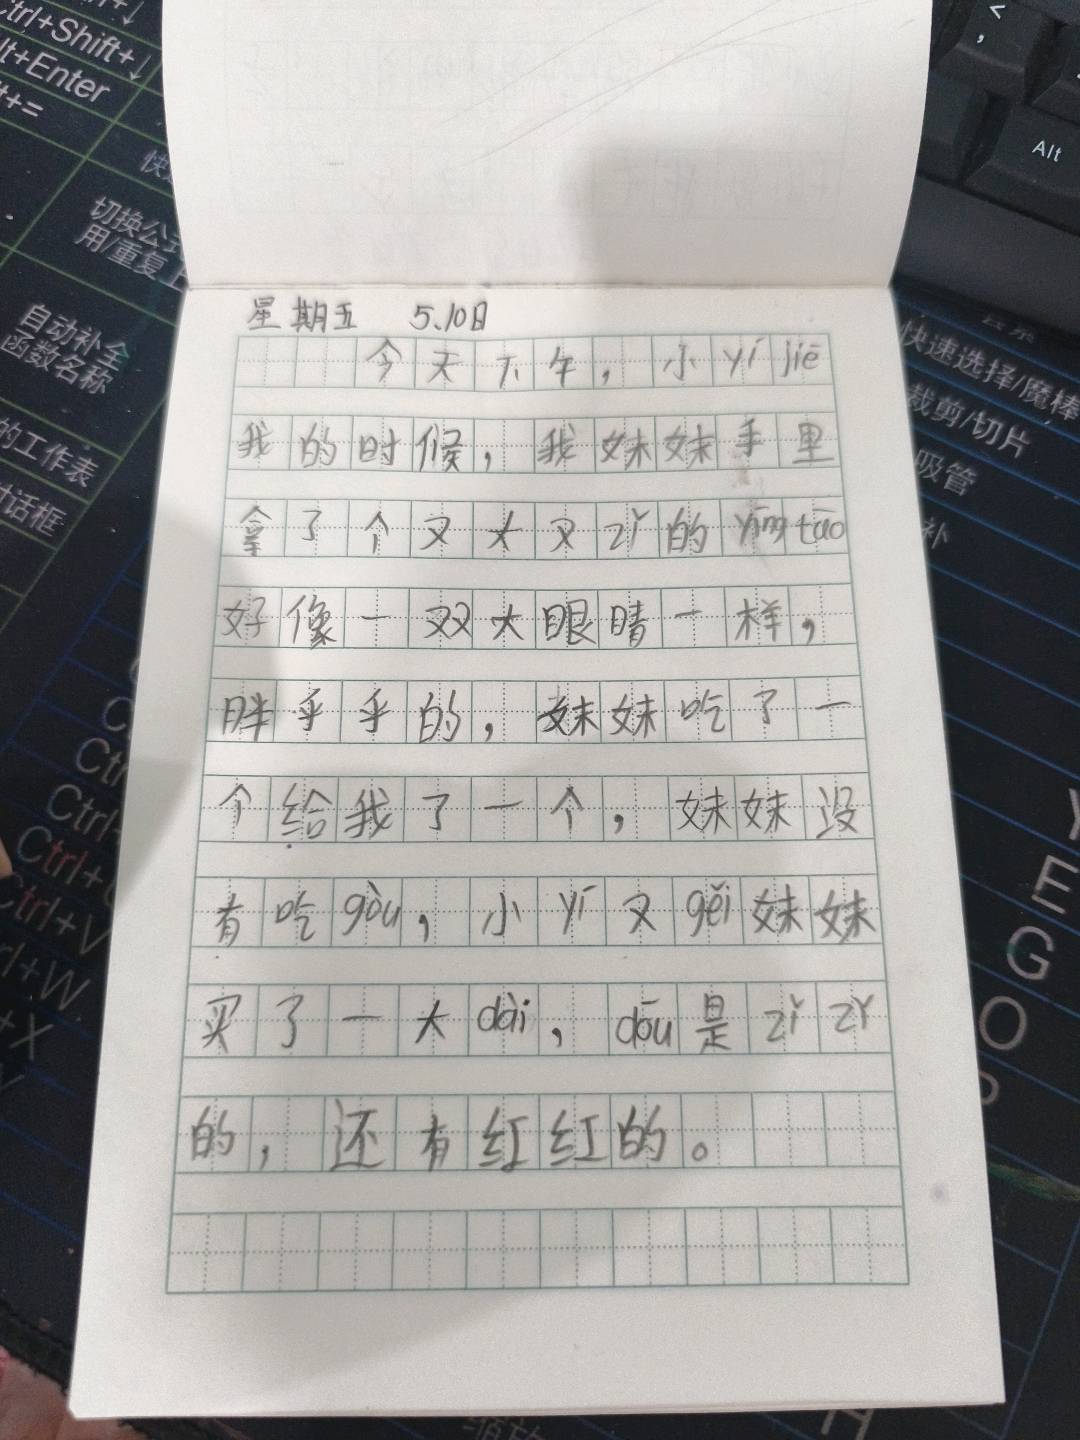 Ctrl+Shift+↓
lt+Enter
t+=
切换公式
用/重复上
自动补全
函数名称
的工作表
对话框
Ctrl+
Ctrl+V
Alt
快速选择/魔棒
裁剪/切片
吸管
补
Y
E
G
O
星期五 5.10日
今天下午，小yí jiē
我的时候，我妹妹手里
拿了个又大又zǐ的yīng táo
好像一双大眼睛一样，
胖乎乎的，妹妹吃了一
个给我了一个，妹妹没
有吃gòu，小yí又gěi妹妹
买了一大dài，dōu是zǐ zǐ
的，还有红红的。